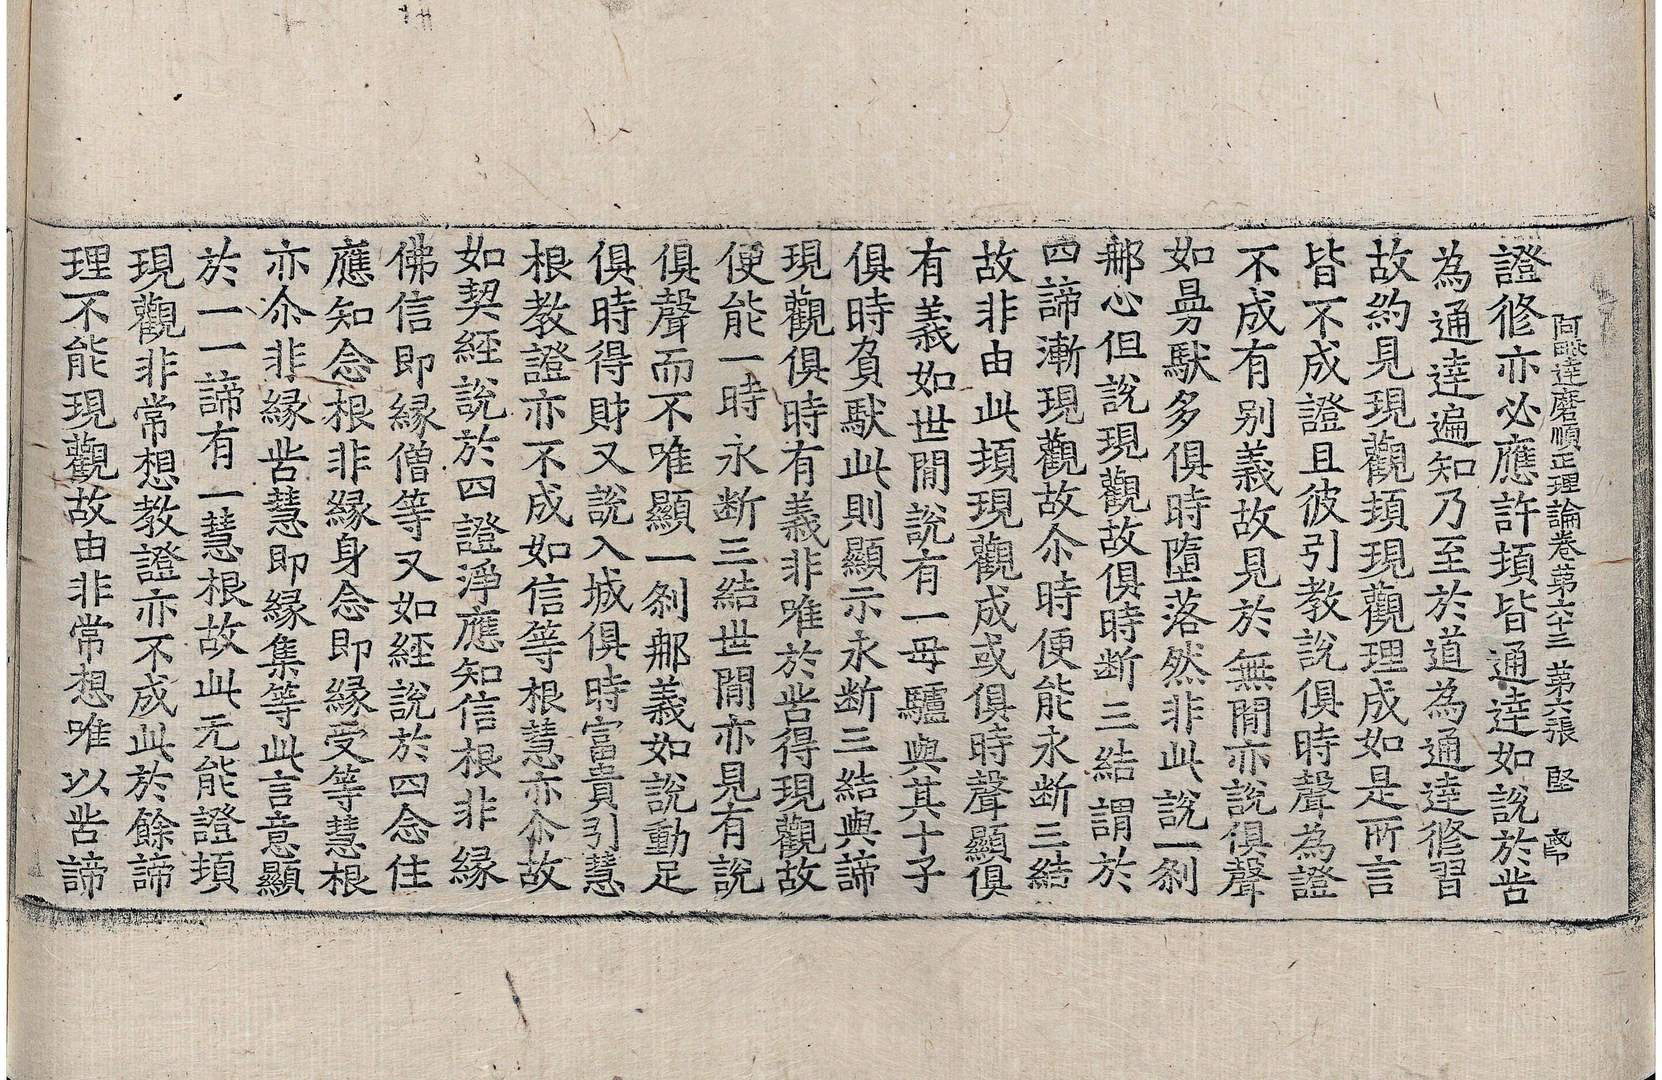 阿毗達磨順正理論卷第六十三 第六張 堅
證修亦必應許頓皆通達如說於苦
為通達遍知乃至於道為通達修習
故約見現觀頓現觀理成如是所言
皆不成證且彼引教說俱時聲為證
不成有別義故見於無間亦說俱聲
如昴勞馱多俱時墮落然非此說一剎
那心但說現觀故俱時斷三結謂於
四諦漸現觀故尒時便能永斷三結
故非由此頓現觀成或俱時聲顯俱
有義如世間說有一母驢與其十子
俱時負馱此則顯示永斷三結與諦
現觀俱時有義非唯於苦得現觀故
便能一時永斷三結世間亦見有說
俱聲而不唯顯一剎那義如說動足
俱時得財又說入城俱時富貴引慧
根教證亦不成如信等根慧亦尒故
如契經說於四證淨應知信根非緣
佛信即緣僧等又如經說於四念住
應知念根非緣身念即緣受等慧根
亦尒非緣苦慧即緣集等此言意顯
於一一諦有一慧根故此无能證頓
現觀非常想教證亦不成此於餘諦
理不能現觀故由非常想唯以苦諦